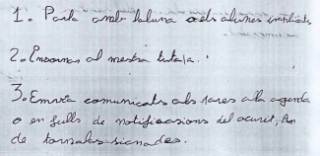 1. Parla amb l'alumne o els alumnes implicats
2. Encarnas al mestra tutora.
3. Envia comunicats als pares a l'agenda
o en fulls de notificacions del ocurit, han
de tornar-les signades.